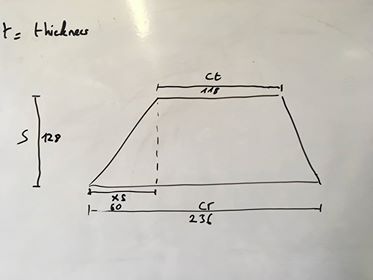 t = thickness
Ct
118
S
128
xs
60
Cr
236